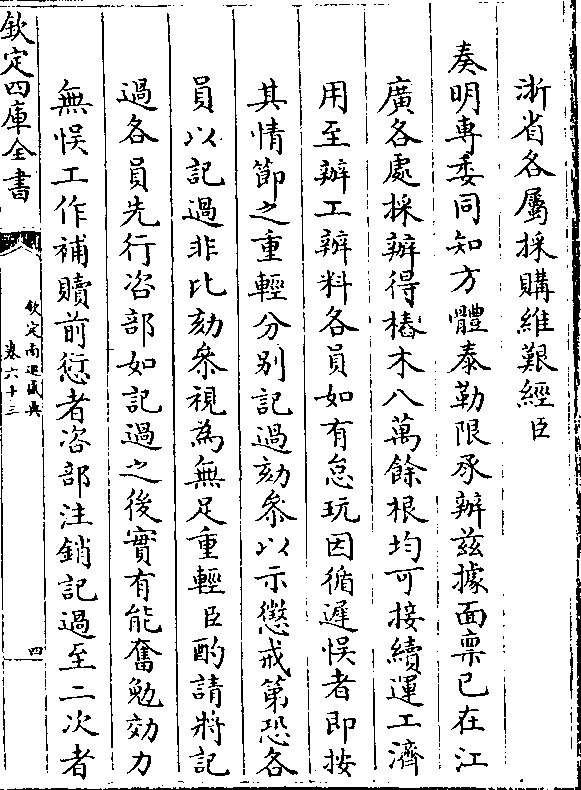 浙省各屬採購維艱經臣
奏明專委同知方體泰勒限承辦兹據面禀已在江
廣各處採辦得樁木八萬餘根均可接續運工濟
用至辦工辦料各員如有怠玩因循遲悞者即按
其情節之重輕分别記過劾叅以示懲戒第恐各
員以記過非比劾叅視為無足重輕臣酌請將記
過各員先行咨部如記過之後實有能奮勉効力
無悞工作補贖前愆者咨部注銷記過至二次者
欽定四庫全書
欽定南巡盛典
卷六十三
四